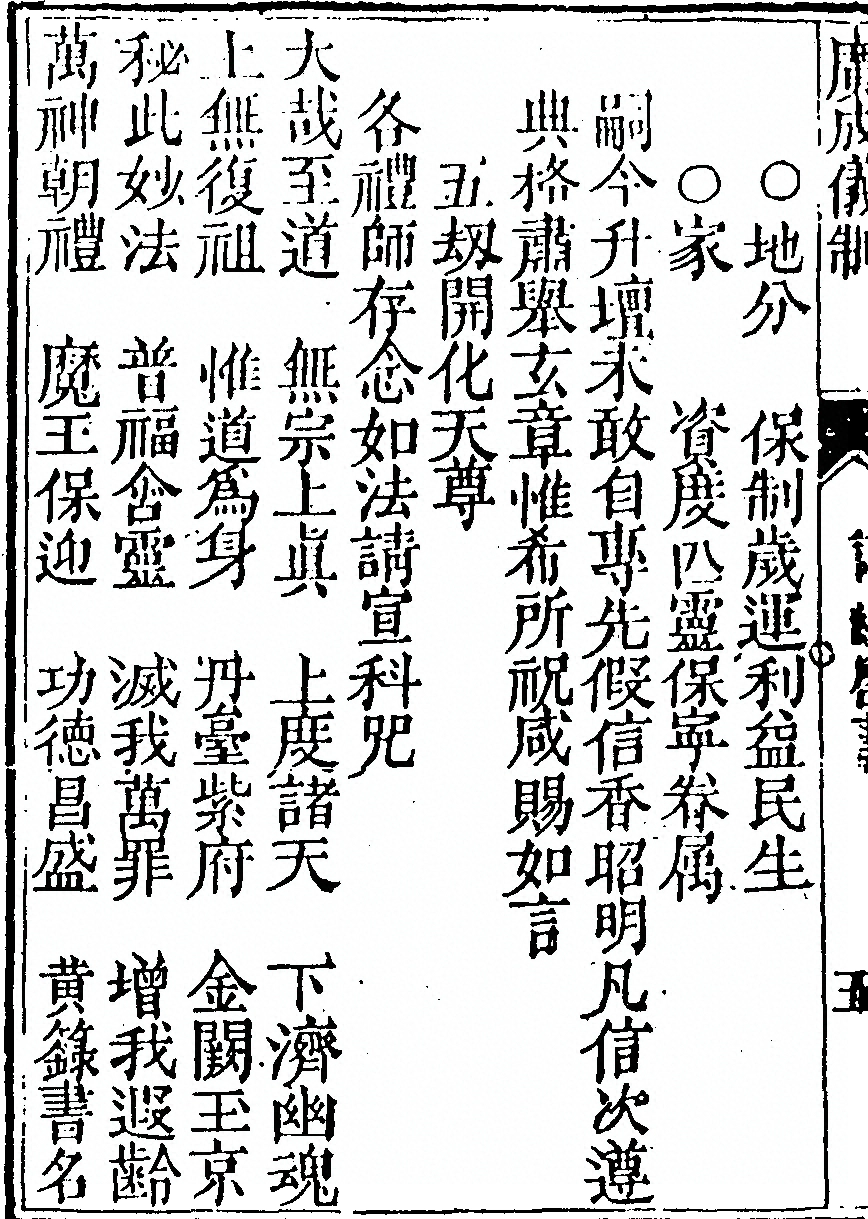 廣成儀制
五
○地分　保制歲運利益民生
○家　資度四靈保寧眷属
嗣今升壇未敢自專先假信香昭明凡信次遵
典格肅舉玄章惟希所祝咸賜如言
五劫開化天尊
各禮師存念如法請宣科咒
大哉至道　無宗上眞　上度諸天　下濟幽魂
上無復祖　惟道爲身　丹臺紫府　金闕玉京
秘此妙法　普福含靈　滅我萬罪　增我遐齡
萬神朝禮　魔王保迎　功德昌盛　黄籙書名